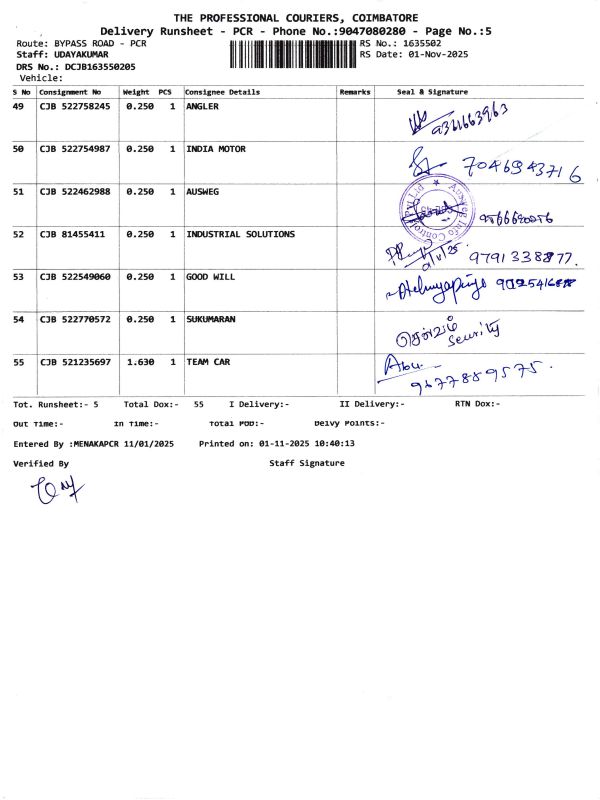 THE PROFESSIONAL COURIERS, COIMBATORE
Delivery Runsheet - PCR - Phone No.:9047080280 - Page No.:5
Route: BYPASS ROAD - PCR RS No.: 1635502
Staff: UDAYAKUMAR RS Date: 01-Nov-2025
DRS No.: DCJB163550205
Vehicle:
S No Consignment No Weight PCS Consignee Details Remarks Seal & Signature
49 CJB 522758245 0.250 1 ANGLER
50 CJB 522754987 0.250 1 INDIA MOTOR 7046943716
51 CJB 522462988 0.250 1 AUSWEG
52 CJB 81455411 0.250 1 INDUSTRIAL SOLUTIONS 9791338877.
53 CJB 522549060 0.250 1 GOOD WILL
54 CJB 522770572 0.250 1 SUKUMARAN Security
55 CJB 521235697 1.630 1 TEAM CAR Abu 9677889575.
Tot. Runsheet:- 5 Total Dox:- 55 I Delivery:- II Delivery:- RTN Dox:-
Out Time:- In Time:- Total POD:- Delvy Points:-
Entered By :MENAKAPCR 11/01/2025 Printed on: 01-11-2025 10:40:13
Verified By Staff Signature